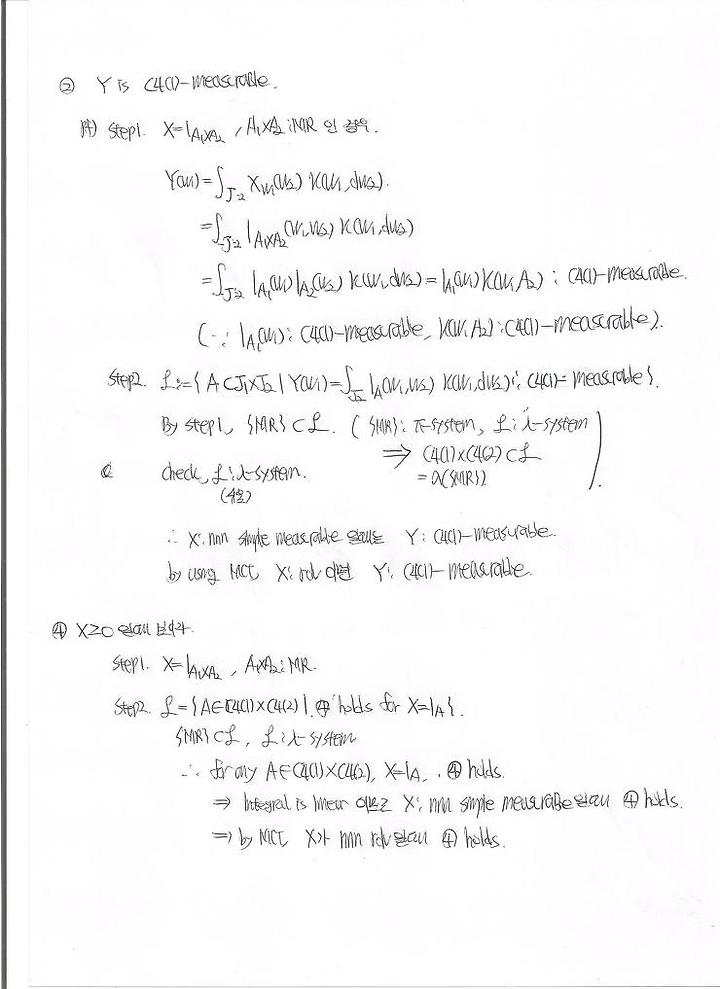 ② Y is C4(1)-measurable.
pf) Step1. X=1_{A₁×A₂}, A₁×A₂:MR 인 경우.
Y(w₁)=∫_{Ω₂} X_{w₁}(w₂) K(w₁,dw₂).
=∫_{Ω₂} 1_{A₁×A₂}(w₁,w₂) K(w₁,dw₂)
=∫_{Ω₂} 1_{A₁}(w₁)1_{A₂}(w₂) K(w₁,dw₂)=1_{A₁}(w₁)K(w₁,A₂) : C4(1)-measurable.
(∵ 1_{A₁}(w₁): C4(1)-measurable, K(w₁,A₂):C4(1)-measurable).
Step2. ℒ:={A⊂Ω₁×Ω₂ | Y(w₁)=∫_{Ω₂} 1_A(w₁,w₂) K(w₁,dw₂): C4(1)-measurable}.
By step1, {MR}⊂ℒ. ({MR}: π-system, ℒ: λ-system
⇒ C4(1)×C4(2)⊂ℒ
=σ({MR})).
check, ℒ:λ-system.
∴ X: nnn simple measurable 일때는 Y: C4(1)-measurable.
by using MCT, X: rdv 이면 Y: C4(1)-measurable.
④ X≥0 일때 보이자.
Step1. X=1_{A₁×A₂}, A₁×A₂:MR.
Step2. ℒ={A∈C4(1)×C4(2) | ④ holds for X=1_A}.
{MR}⊂ℒ, ℒ:λ-system
∴ for any A∈C4(1)×C4(2), X=1_A, ④ holds.
⇒ Integral is linear 이므로 X: nnn simple measurable 일때 ④ holds.
⇒ by MCT, X가 nnn rdv 일때 ④ holds.